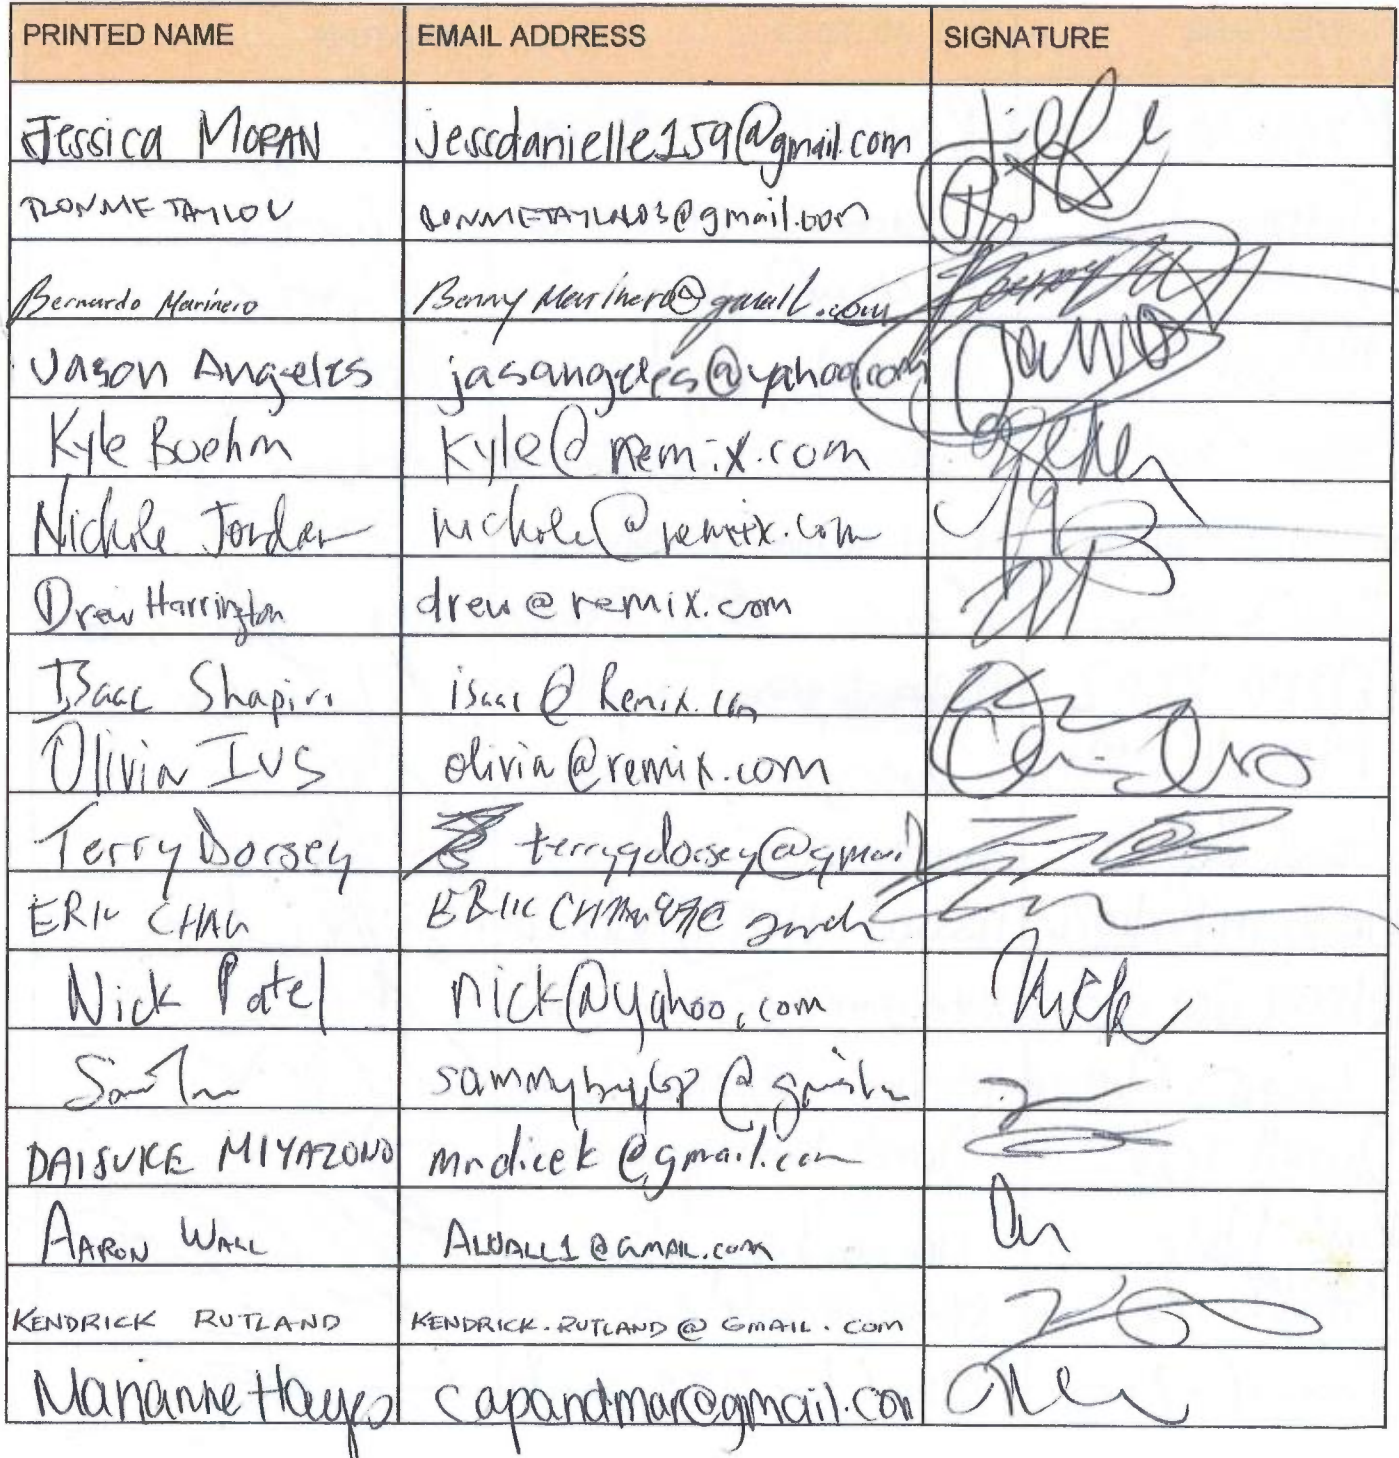 PRINTED NAME EMAIL ADDRESS SIGNATURE
Jessica MORAN jessdanielle159@gmail.com
RONNIE TAYLOR RONNIETAYLOR03@gmail.com
Bernardo Marinero BennyMarinero@gmail.com
Jason Angeles jasangeles@yahoo.com
Kyle Boehm kyle@remix.com
Nichole Jordan nichole@remix.com
Drew Harrington drew@remix.com
Isaac Shapiro isaac@Remix.com
Olivia IVS olivia@remix.com
Terry Dorsey terrygdorsey@gmail
ERIC CHAN
Nick Patel nick@yahoo.com Nick
DAISUKE MIYAZONO mrdicek@gmail.com
AARON WALL ALWALL1@GMAIL.COM
KENDRICK RUTLAND KENDRICK.RUTLAND@GMAIL.COM
Marianne Hayes capandmar@gmail.com